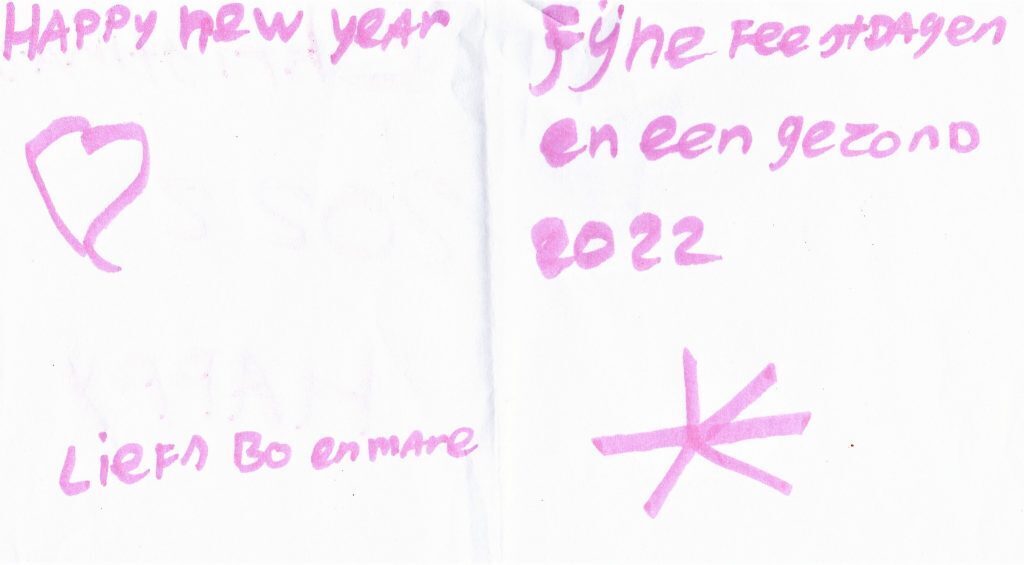 HAPPy new year
Liefs Bo en mare
Fijne FeestDAgen
en een gezond
2022